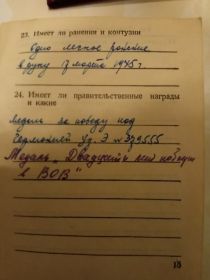 23. Имеет ли ранения и контузии
одно легкое ранение
в руку 7 марта 1945 г
24. Имеет ли правительственные награды
и какие
Медаль за победу над
Германией Уд. Э №379555
Медаль „Двадцать лет победы
в ВОВ"
15